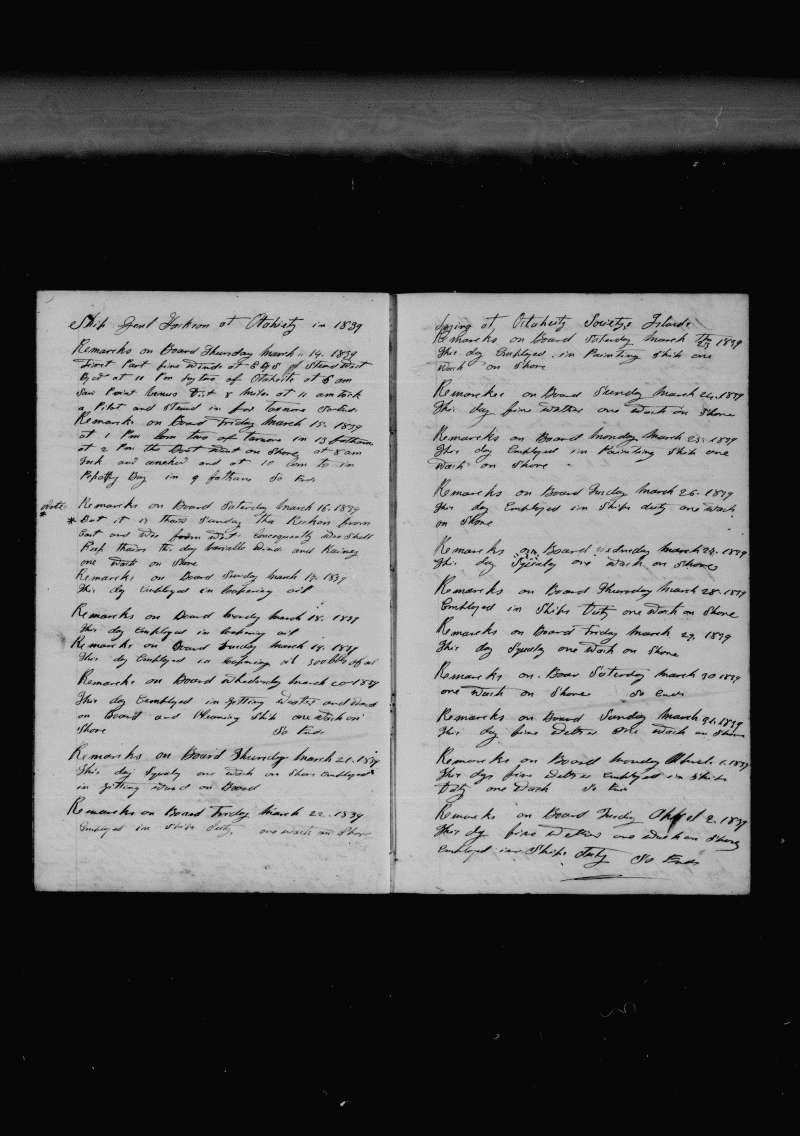 Ship Genl Jackson at Otahiety in 1839
Remarcks on Board Thursday March 14. 1839
First Part fine winds at E by S Stead West
By at 10 Pm by two of Otaheite at 5 am
Saw Point Venus Dist 8 miles at 11 am took
a Pilot and Stand in for
Remarcks on Board Friday March 15. 1839
at 1 Pm two of in 13 fathom
at 2 Pm the Boat went on Shore at 8 am
and and at 10 am to in
Bay in 9 fathom So Ends
Note Remarcks on Board Saturday March 16. 1839
* But it is Sunday Tha Reckon from
East and Wee from West Consequently wee Shall
Keep this day variable Wind and Rainey
one watch on Shore
Remarcks on Board Sunday March 17. 1839
This day Employed in Coopering oil
Remarcks on Board Monday March 18. 1839
This day Employed in Coopering oil
Remarcks on Board Tuesday March 19. 1839
This day Employed in Coopering oil 300 bbls of oil
Remarcks on Board Whednesday March 20 1839
This day Employed in getting Water and Wood
on Board and Cleaning Ship one watch on
Shore So Ends
Remarcks on Board Thursday March 21. 1839
This day Squaly one watch on Shore Employed
in getting Wood on Board
Remarcks on Board Friday March 22. 1839
Employed in Ships duty. one watch on Shore
Laying at Ottaheity Society,s Islands
Remarcks on Board Saturday March 23 1839
This day Employed in Painting Ship one
Watch on Shore
Remarcks on Board Sunday March 24. 1839
This day fine wether one watch on Shore
Remarcks on Board Monday March 25. 1839
This day Employed in Painting Ship one
watch on Shore
Remarcks on Board Tuesday March 26. 1839
This day Employed in Ships duty one watch
on Shore
Remarcks on Board Wednesday March 27. 1839
This day Squaly one watch on Shore
Remarcks on Board Thursday March 28. 1839
Employed in Ships Duty one watch on Shore
Remarcks on Board Friday March 29. 1839
This day Squaly one watch on Shore
Remarcks on Boar Saturday March 30 1839
one watch on Shore So Ends
Remarcks on Board Sunday March 31. 1839
This day fine wether one watch on Shore
Remarcks on Board Monday 1. 1839
This day fine wether Employed in Ships
Duty one watch So Ends
Remarcks on Board Tuesday April 2. 1839
This day fine wether one watch on Shore
Employed in Ships Duty So Ends